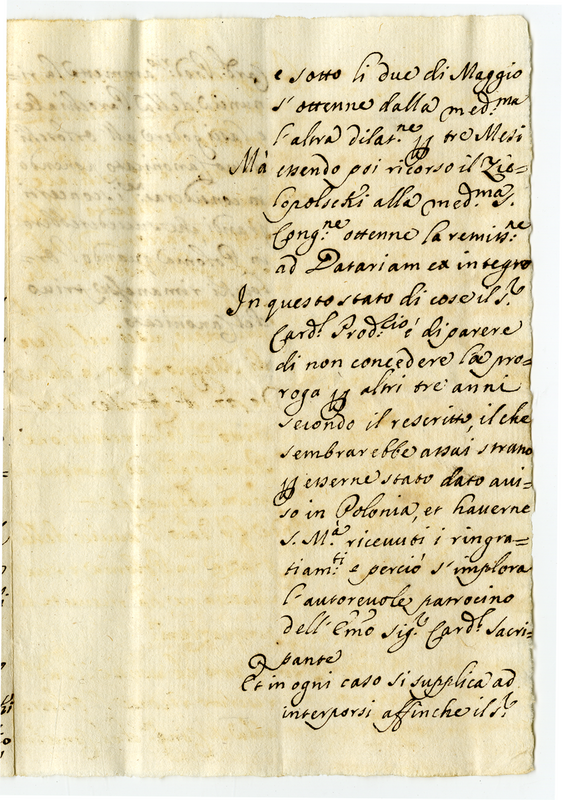 e sotto li due di Maggio
s'ottenne dalla med.ma
l'altra dilat.ne p tre Mesi
Mà essendo poi ricorso il Zie=
lopolschi alla med.ma S.
Cong.ne ottenne la remiss.ne
ad Datariam ex integro
In questo stato di cose il s.r
Card.l Prod.rio è di parere
di non concedere la pro=
roga p altri tre anni
secondo il rescritto, il che
sembrarebbe assai strano
p esserne stato dato aui=
so in Polonia, et hauerne
S. M.à riceuuti i ringra=
tiam.ti e perciò s'implora
l'autoreuole patrocino
dell'Emo sig.r Card.l Sacri=
pante
Et in ogni caso si supplica ad
interporsi affinche il s.r